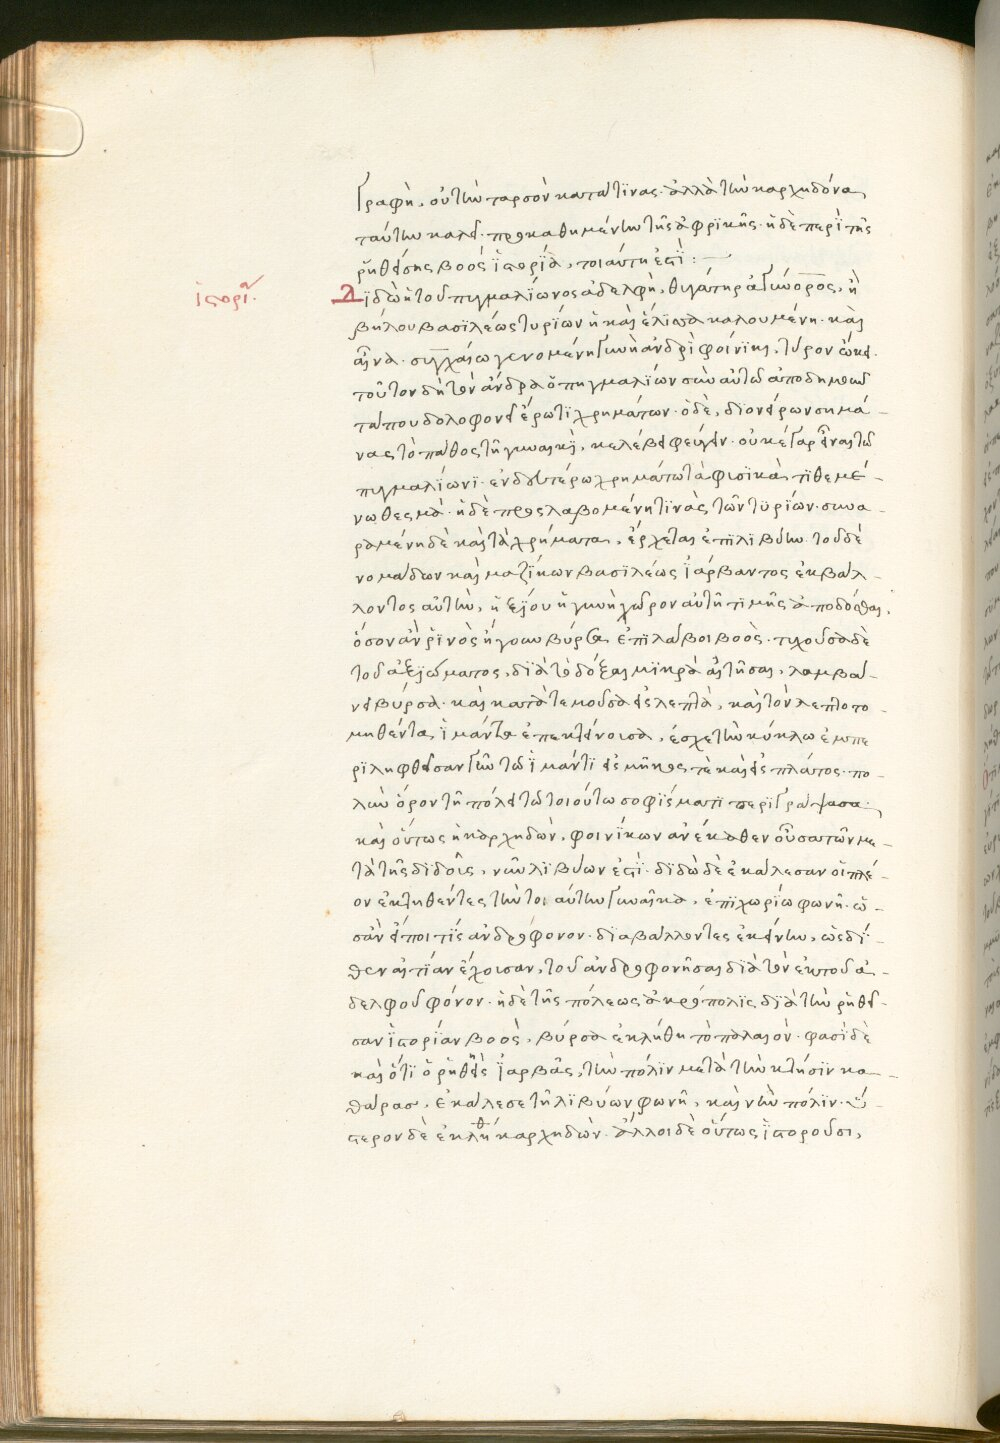 γραφὴ, οὐ τὴν ταρσὸν κατά τϊνας· ἀλλὰ τὴν καρχηδόνα,
ταύτην καλεῖ· προκαθημένην τῆς ἀφρϊκῆς· ἡ δὲ περὶ τῆς
ῥηθείσης βοὸς ἱστορία, τοιαύτη ἐστὶ:
ἱστορί
Διδὼ ἡ τοῦ πιγμαλίωνος ἀδελφὴ, θυγάτηρ ἀγήνορος, ἢ
βήλου βασϊλέως τυρίων ἡ καὶ ἐλίσσα καλουμένη· καὶ
ἄννα· συγχαίω γενομένη γυνὴ ἀνδρὶ φοίνϊκι, τύρον ᾤκει·
τοῦτον δὴ τὸν ἄνδρα ὁ πηγμαλίων σὺν αὐτῶ ἀποδημοῦ
τά που δολοφονεῖ ἔρωτι χρημάτων· ὁ δὲ, δι' ὀνείρων σημά-
νας τὸ πάθος τῆ γυναικὶ, κελεύει φεύγειν· οὐκέτ γὰρ εἶναι τῶ
πιγμαλίωνι· ἐν δευτέρω χρημάτων τὰ φυσϊκὰ τϊθεμέ-
νω θεσμὰ· ἡ δὲ προσλαβομένη τϊνὰς τῶν τυρίων· συνα-
ραμένη δὲ καὶ τὰ χρήματα, ἔρχεται ἐπὶ λϊβύην· τοῦ δὲ
νομάδων καὶ μαζίκων βασϊλέως ἰάρβαντος ἐκβάλ-
λοντος αὐτὴν, ἠξίου ἡ γυνὴ χῶρον αὐτῆ τιμῆς ἀποδόσθαι,
ὅσον ἂν ῥϊνὸς ἤγουν βύρσα ἐπϊλάβοι βοὸς· τυχοῦσα δὲ
τοῦ ἀξιώματος, διὰ τὸ δόξαι μϊκρὰ αἰτῆσαι, λαμβά-
νει βύρσαν· καὶ κατατεμοῦσα εἰς λεπτὰ, καὶ τὸν λεπτοτο-
μηθέντα ἱμάντα ἐπεκτείνουσα, ἔσχε τὴν κύκλω ἐμπε
ρϊληφθεῖσαν γῆν τῶ ἱμάντι εἰς μῆκος τὲ καὶ εἰς πλάτος· πο-
λὺν ὅρον τῆ πόλει τῶ τοιούτω σοφίσματι περϊγράψασα·
καὶ οὕτως ἡ καρχηδὼν, φοινίκων ἀνέκαθεν οὖσα τῶν με-
τὰ τῆς διδοῦς, νῦν λϊβύων ἐστὶ· διδὼ δὲ ἐκάλεσαν οἱ πλέ-
ον ἐκτιθέντες τὴν τοιαύτην γυναῖκα, ἐπϊχωρίω φωνῆ· ὡ-
σὰν εἴποι τὶς ἀνδροφόνον· διαβάλλοντες ἐκείνην, ὡς δῆ-
θεν αἰτίαν ἔχουσαν, τοῦ ἀνδροφονῆσαι διὰ τὸν ἐκ τοῦ ἀ-
δελφοῦ φόνον· ἡ δὲ τῆς πόλεως ἀκρόπολις διὰ τὴν ῥηθεῖ-
σαν ἱστορίαν βοὸς, βύρσα ἐκλήθη τὸ παλαιὸν· φασὶ δὲ
καὶ ὅτι ὁ ῥηθεὶς ἰάρβας, τὴν πόλιν μετὰ τὴν κτῆσϊν κα-
θάρας, ἐκάλεσε τῆ λϊβύων φωνῆ, καινὴν πόλϊν· ὕ-
στερον δὲ ἐκλήθη καρχηδὼν· ἄλλοι δὲ οὕτως ἱστοροῦσι,